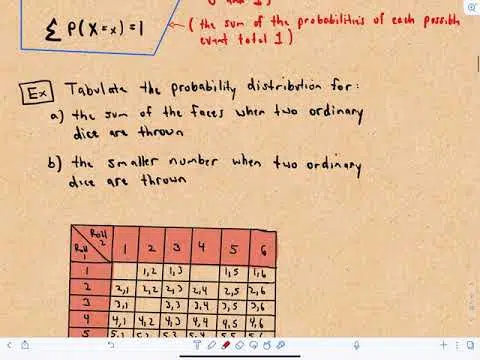 0 and 1)
∑ P(X=x)=1
(the sum of the probabilities of each possible
event total 1)
Ex Tabulate the probability distribution for:
a) the sum of the faces when two ordinary
dice are thrown
b) the smaller number when two ordinary
dice are thrown
Roll 2
Roll 1
1 2 3 4 5 6
1 1,2 1,3 1,5 1,6
2 2,1 2,2 2,3 2,4 2,5 2,6
3 3,1 3,3 3,4 3,5 3,6
4 4,1 4,2 4,3 4,4 4,5 4,6
5